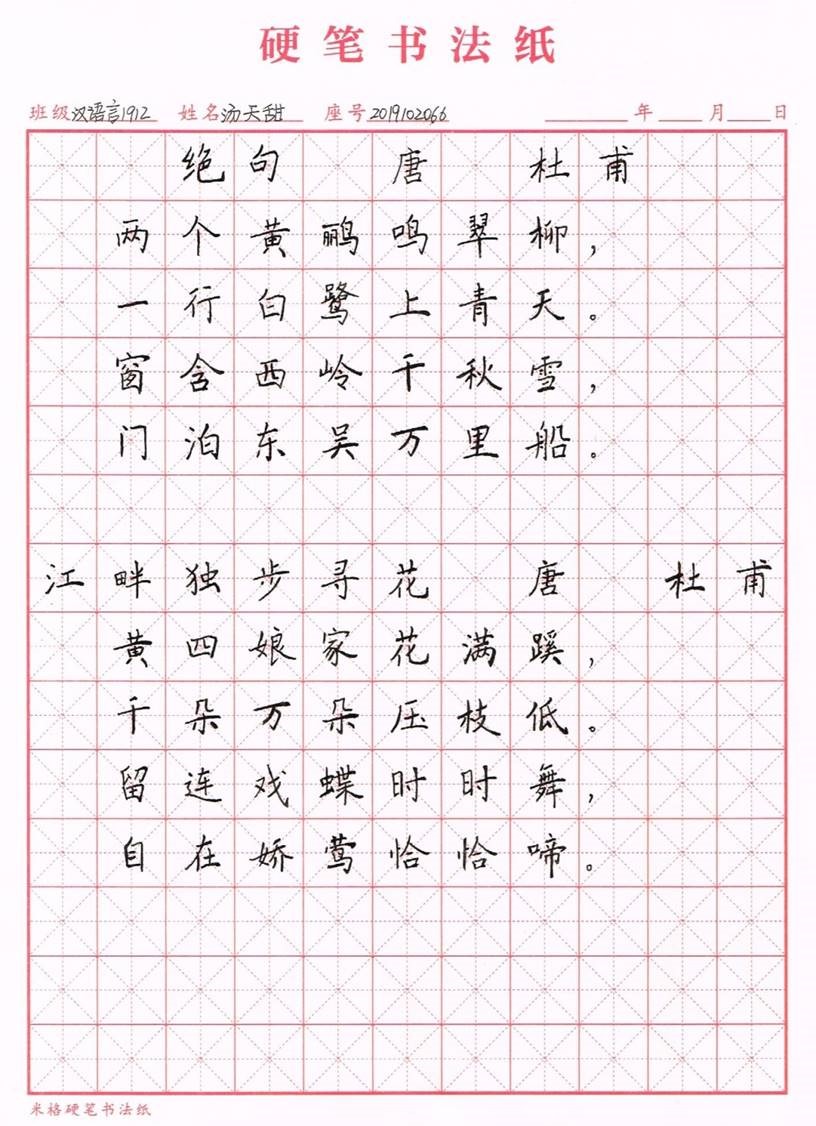 硬笔书法纸
班级汉语言1912 姓名汤天甜 座号2019102066 年 月 日
绝句 唐 杜甫
两个黄鹂鸣翠柳，
一行白鹭上青天。
窗含西岭千秋雪，
门泊东吴万里船。
江畔独步寻花 唐 杜甫
黄四娘家花满蹊，
千朵万朵压枝低。
留连戏蝶时时舞，
自在娇莺恰恰啼。
米格硬笔书法纸